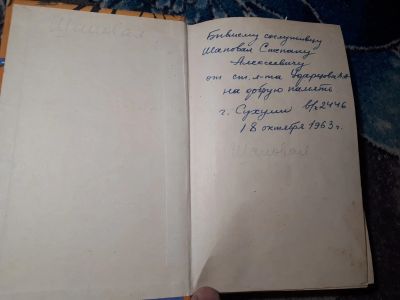 Шаповал
Бывшему сослуживцу
Шаповал Степану
Алексеевичу
от ст. л-та
на добрую память
г. Сухуми в/ч 2446
18 октября 1963 г.
Шаповал